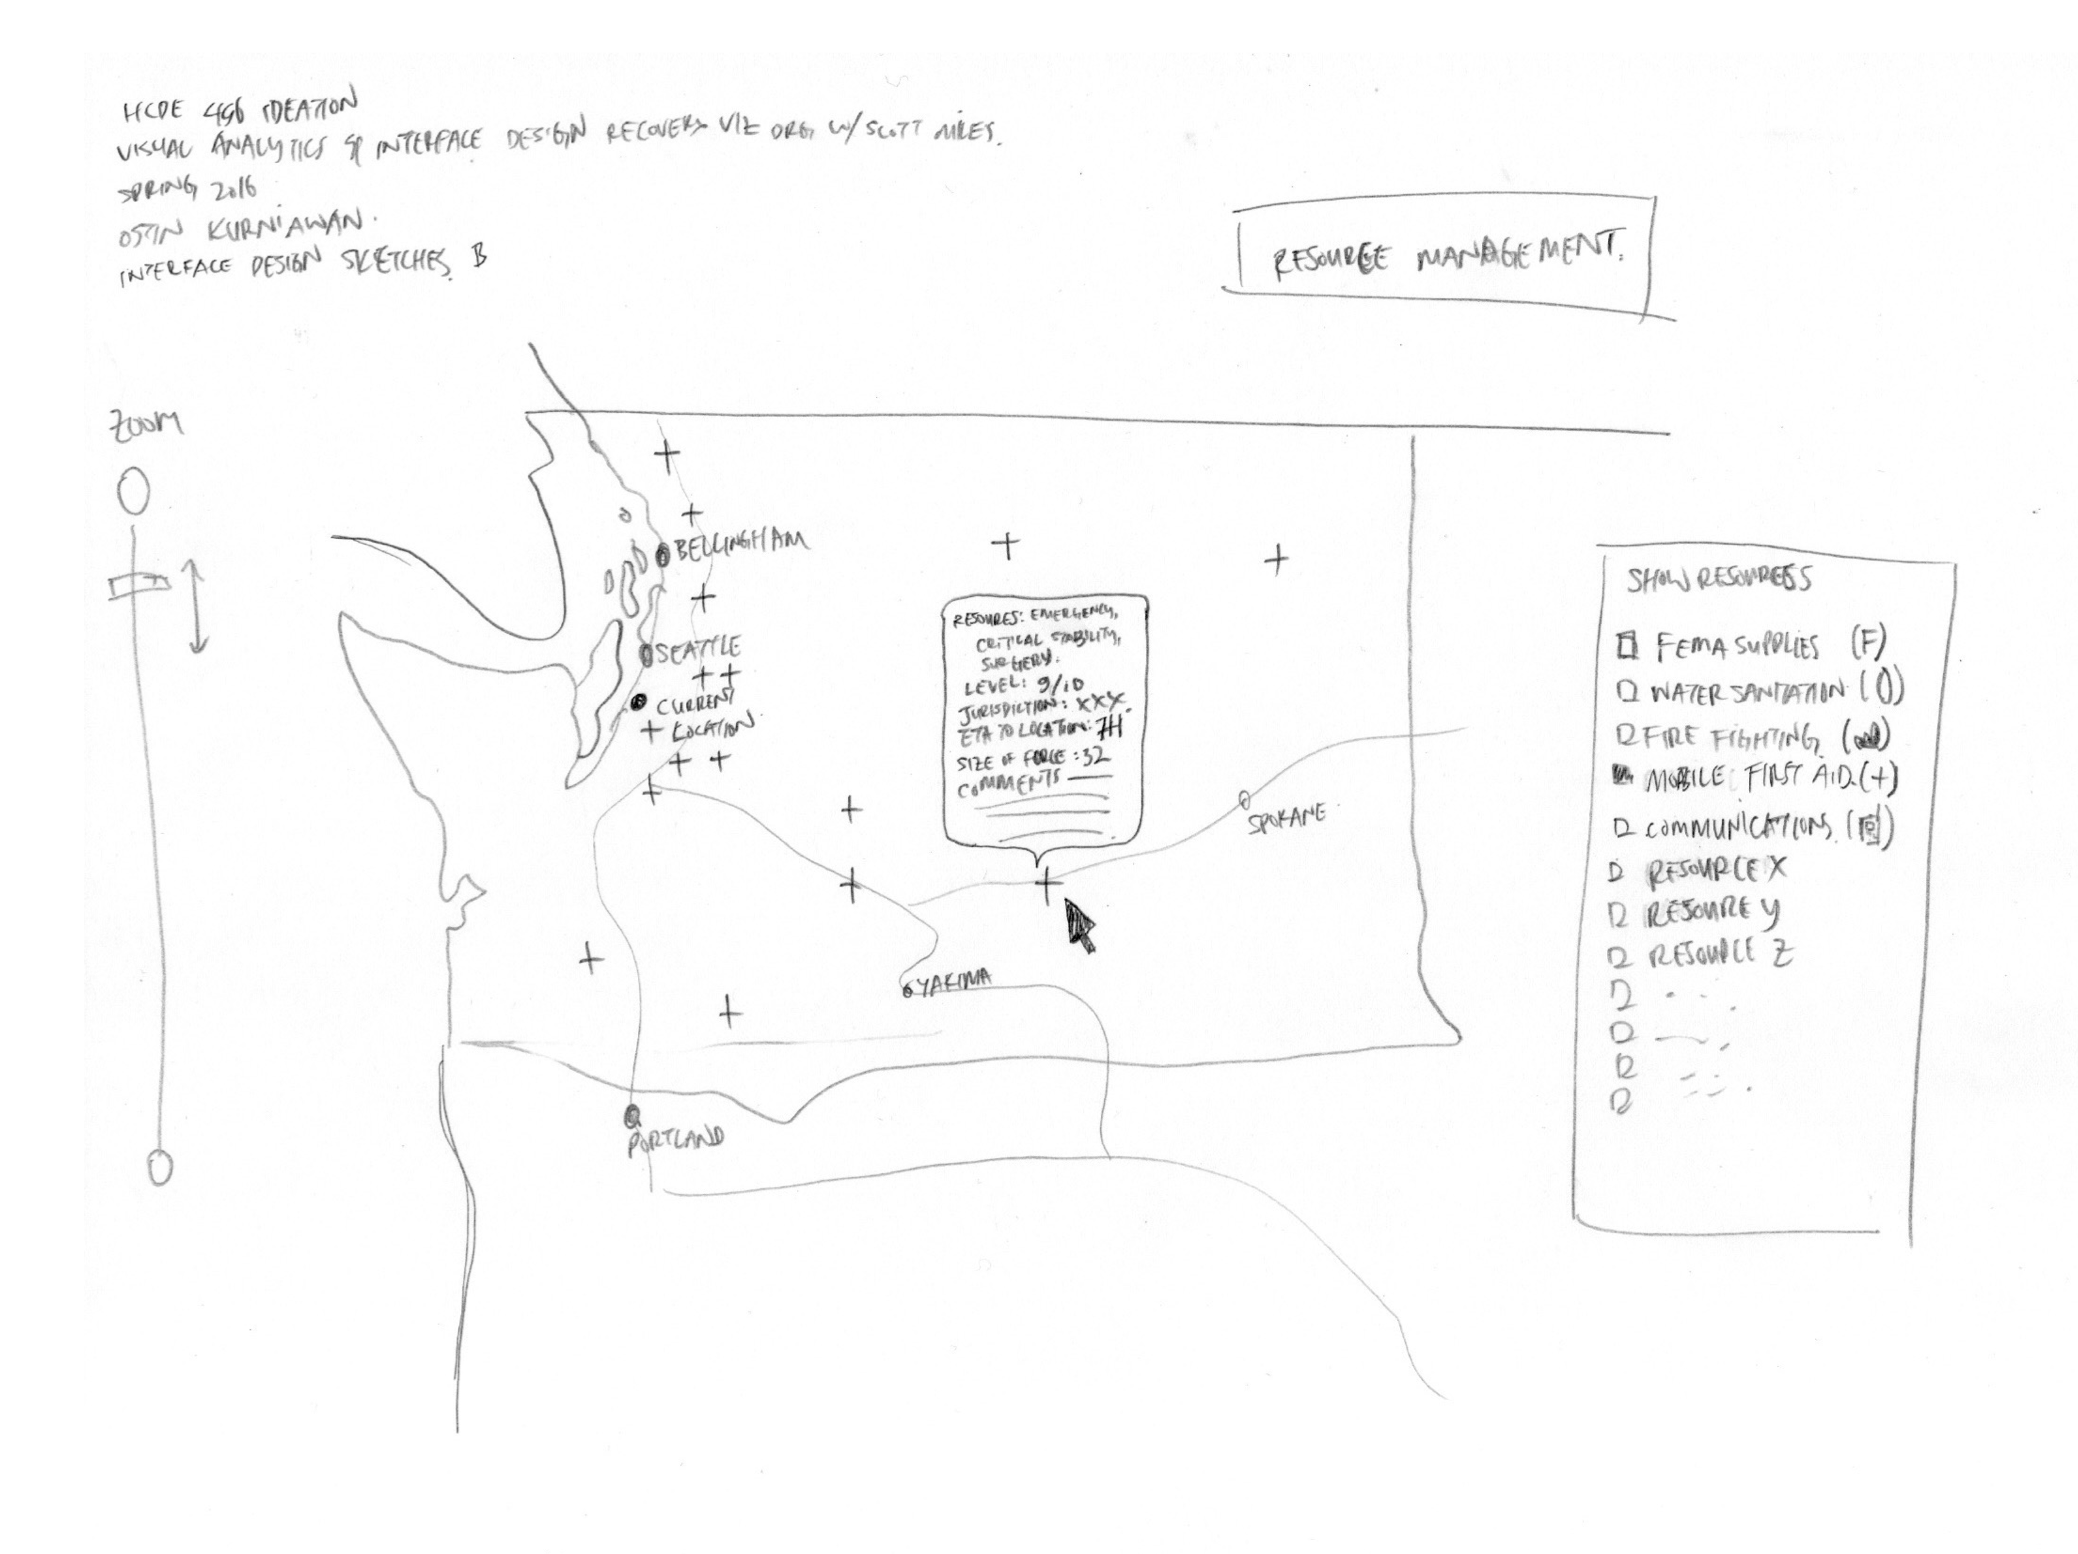 HCDE 496 IDEATION
VISUAL ANALYTICS & INTERFACE DESIGN RECOVERY VIZ ORG W/ SCOTT MILES.
SPRING 2016
OSTIN KURNIAWAN.
INTERFACE DESIGN SKETCHES. B
RESOURCE MANAGEMENT.
ZOOM
BELLINGHAM
SEATTLE
CURRENT
LOCATION.
RESOURES: EMERGENCY,
CRITICAL STABILITY,
SURGERY.
LEVEL: 9/10
JURISDICTION: XXX.
ETA TO LOCATION: 7H
SIZE OF FORCE: 32
COMMENTS
SPOKANE.
YAKIMA
PORTLAND
SHOW RESOURCES
FEMA SUPPLIES (F)
WATER SANITATION
FIRE FIGHTING.
MOBILE FIRST AID. (+)
COMMUNICATIONS.
RESOURCE X
RESOURE Y
RESOURCE Z